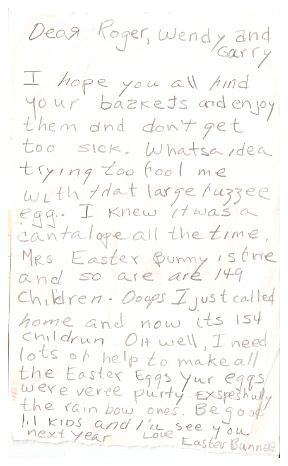 Dear Roger, Wendy and
Garry
I hope you all find
your bazkets and enjoy
them and don't get
too sick. Whatsa idea
trying too fool me
with that large fuzzee
egg. I knew it was a
cantalope all the time.
Mrs Easter Bunny is fine
and so are are 149
Children. Ooops I just called
home and now its 154
childrun. Oh well, I need
lots of help to make all
the Easter Eggs yur eggs
were veree purty exspeshully
the rainbow ones. Be good
lil kids and I'll see you
next year Love Easter Bunnee